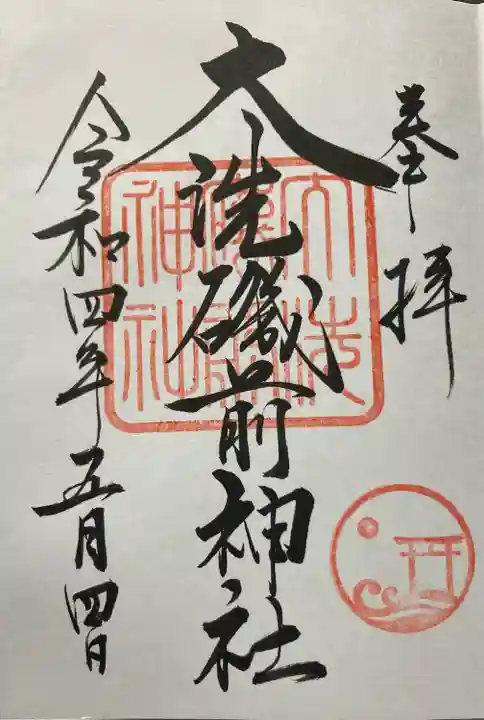 奉拝
大洗磯前神社
令和四年五月四日
大洗磯前神社